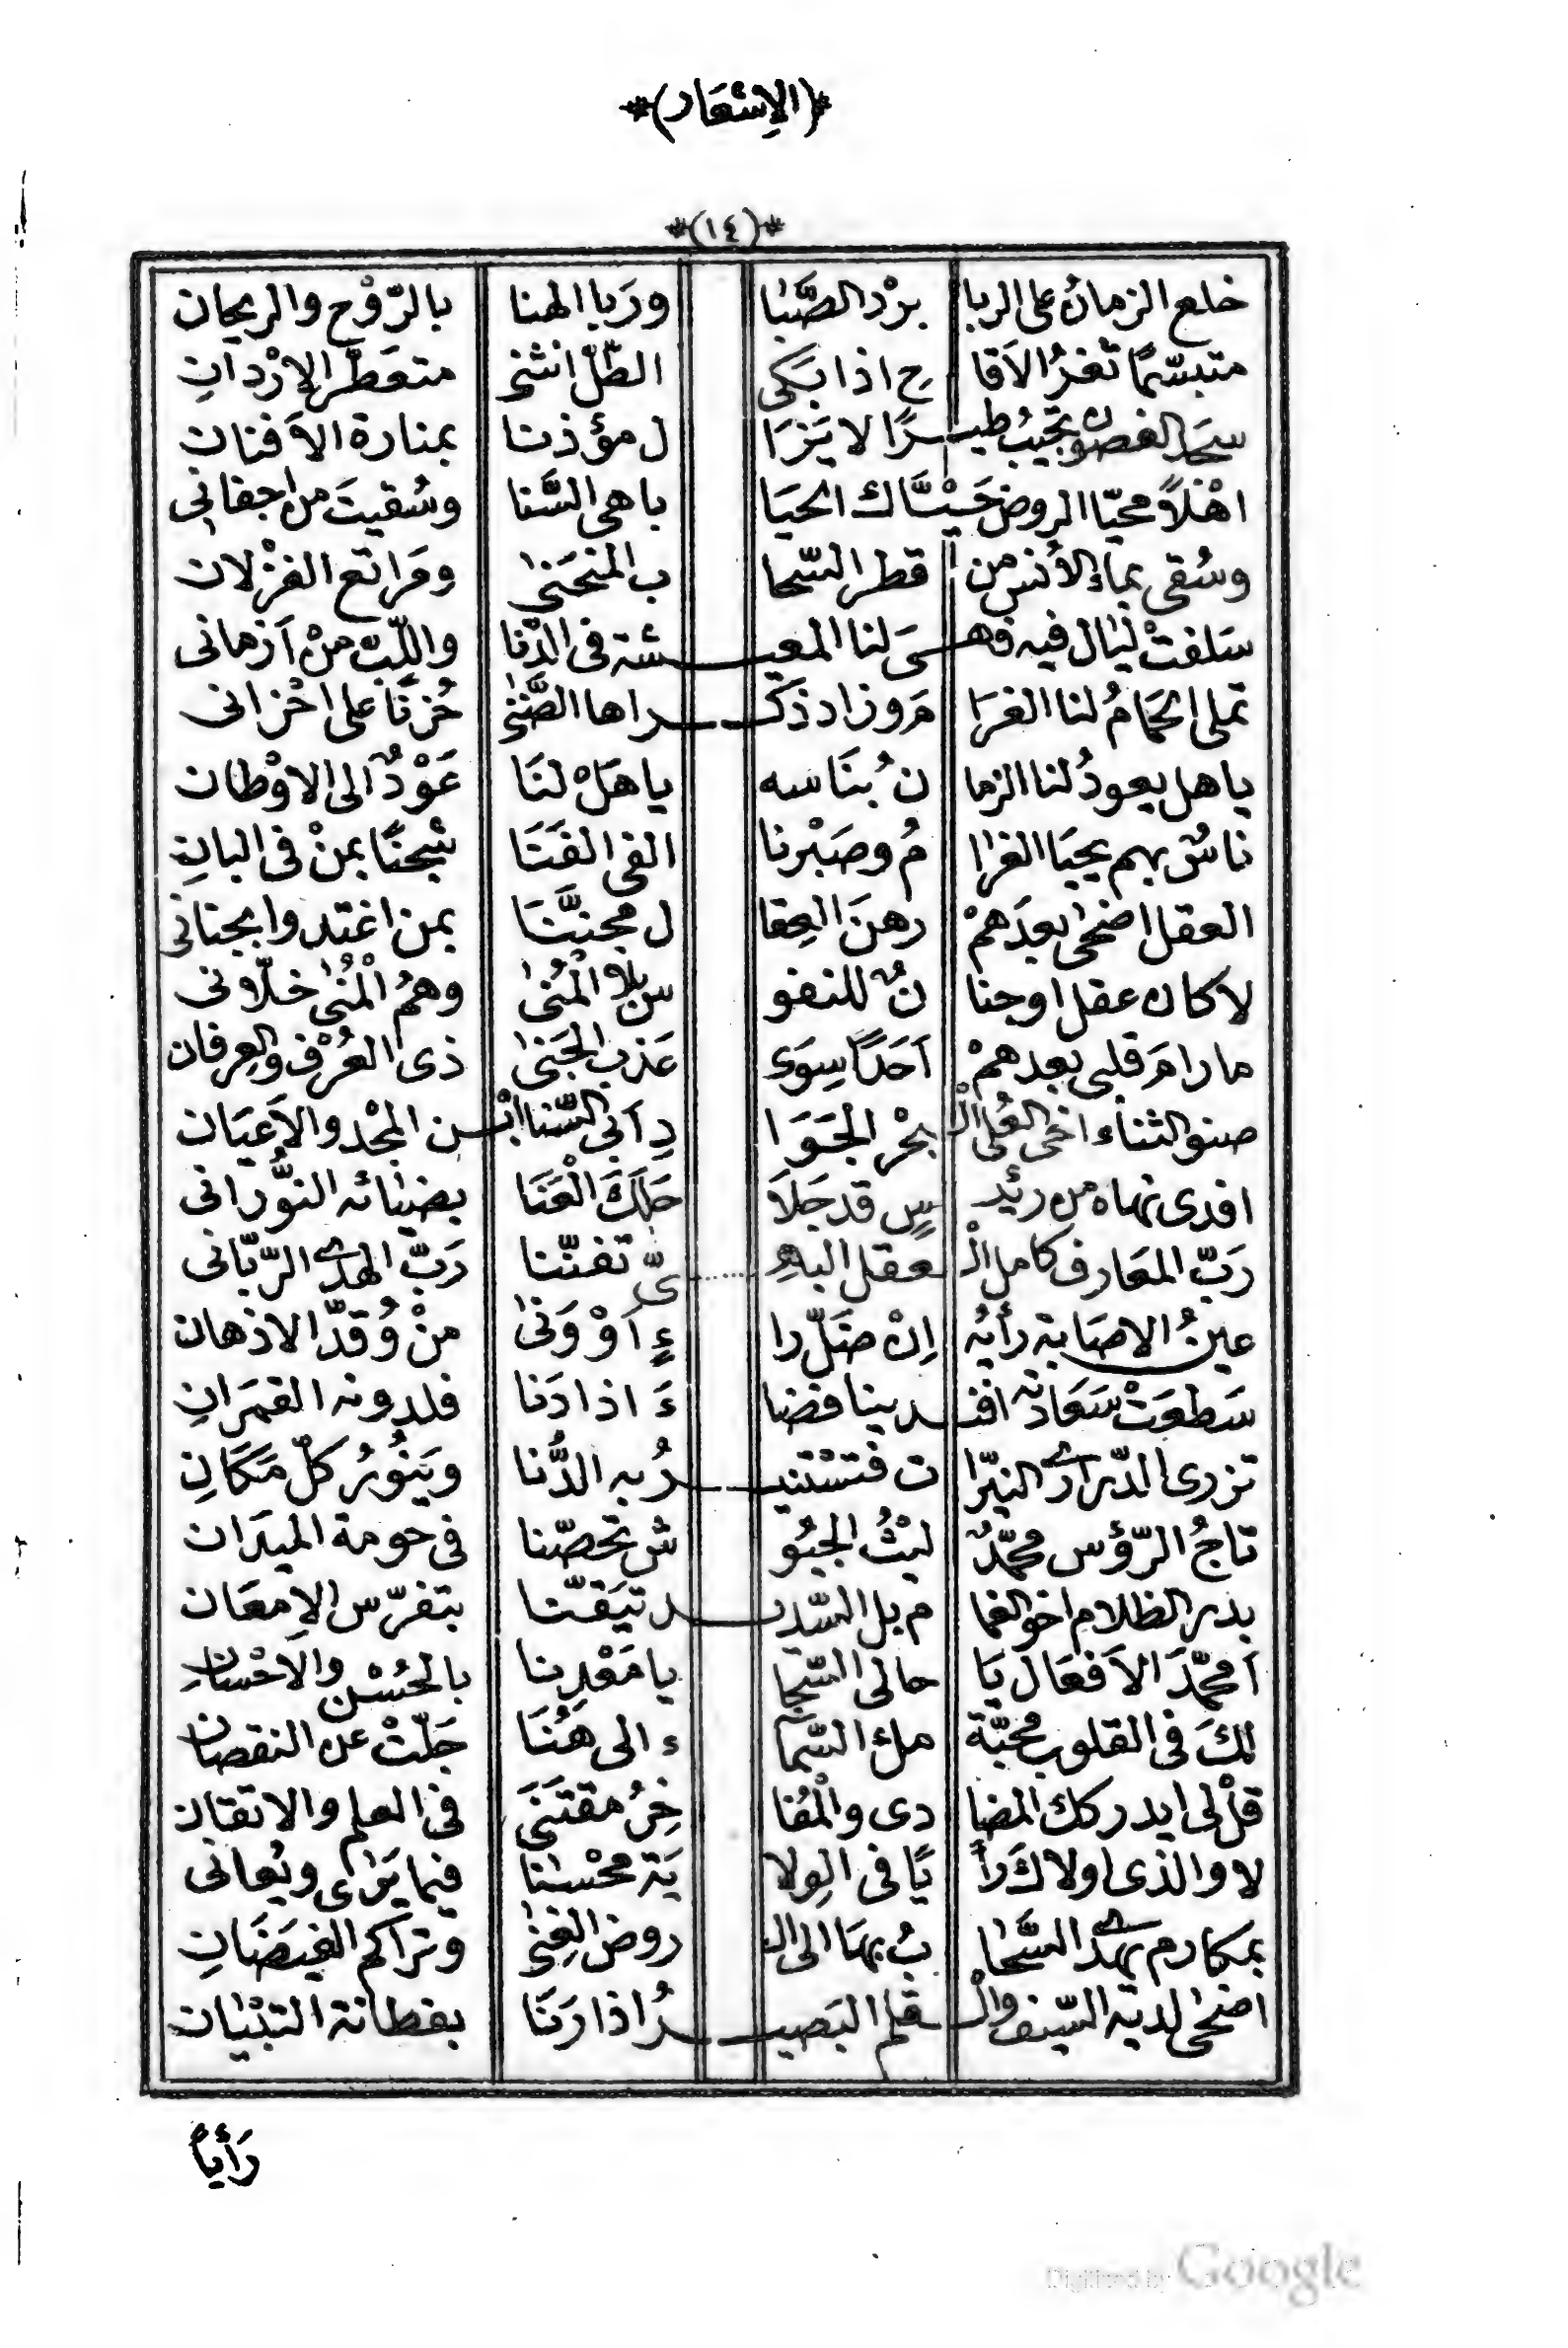 *(الإشعار)*
*(١٤)*
خلع الزمانُ على الربا برْد الصَّبَا ورَبا الهنا بالرّوْح والريحان
متبسّمًا ثغرُ الاَقا ح اذا بَكى الطّلّ انثنى متعَطّر الِارْدانِ
الغصون تجيبُ طيــرًا لا يَزَا ل مؤذنا بمنارة الاَفنان
اهْلاً محيّا الروض حَيَّاك الحيَا باهى السَّنا وسُقيتَ من اجفانى
وسُقى بماء الأنس من قطر السّحا ب المنحَنىٰ ومَراتع الغزْلان
سَلفتْ ليَال فيه فهــىَ لنا المعيــشة فى الدّنا واللّبّ منْ اَزمانى
تملى الحَمَامُ لنا الغرَا مَ وزاد ذكــراها الضَّنىٰ حُزنًا على احْزانى
يا هل يعودُ لنا الزما نُ بنَاسه يا هَلْ لنَا عَوْدٌ الى الاوْطان
ناسٌ بهم يحيَا الغرا مُ وصَبْرنا الفى الفَنَا شجنًا بمنْ فى البانِ
العقل اضحىٰ بعدَهمْ رهنَ العِقا ل مجنِنَّا بمن اغتدوا بجنانى
لا كان عقل اوجنا نٌ للنفو س بلا المُنىٰ وهمُ المُنىٰ خلّانى
ما رامَ قلبى بعدهمْ اَحَدًا سِوَى عَذب الجَنىٰ ذى العُرْف والعِرفان
صنو الثناء اخى العُلى الـ بحْر الجَوَا دِ اَبى السّنا ابْــن المجْد والاَعيَان
افدى نهاه من رئيـ سٍ قد جَلَا حَلَكَ الْعَنَا بضيَائه النوُّرانى
رَبّ المعَارف كامل الْـ ـعقل البهـ ىّ تفنّنا رَبّ الهدى الرّبّانى
عينُ الاصَابة رأيُه اِنْ ضَلّ را ءٍ اَوْ وَنىٰ منْ وُقدّ الاذهان
سَطعَتْ سَعَادته افــدينا فضا ءَ اذا دَنا فلدونه القمَرانِ
تزرى الدّرارى النيّرا ت فتسْتنيــرُ به الدُّنا ويَنوُرُ كلّ مَكَانِ
تاجُ الرّؤس محمّدٌ ليْثُ الجيُو ش تحصّنا فى حومة الميدَان
بدر الظلام اخو الغما م بل السّديــد تيَقّنا بتفرّس الاِمعَان
اَمحمّدَ الاَفعَال يَا حالى السّجَا يا مَعْدِنا بالحُسْن والاَحْسَانِ
لكَ فى القلوب محبّة ملء السّمَا ء الى هَُنَا جَلّتْ عن النقصان
قلْ لى ايدركك المضا دى والمُفا خِرُ مقتَنَى فى العلم والاتقان
لا والذى اولاكَ رأ يًا فى الوِلا يَة محْسنا فيما يَرَاى ويُعانى
بمكارم تهدى السَّحا بُ بهَا الى الـ روض الغِنىٰ وتراكم الفيَضَانِ
اضحىٰ لديه السّيف والْــقلم البَصيــرُ اذا رَنَا بفطانة التبْيَان
رَأيًا
Digitized by Google